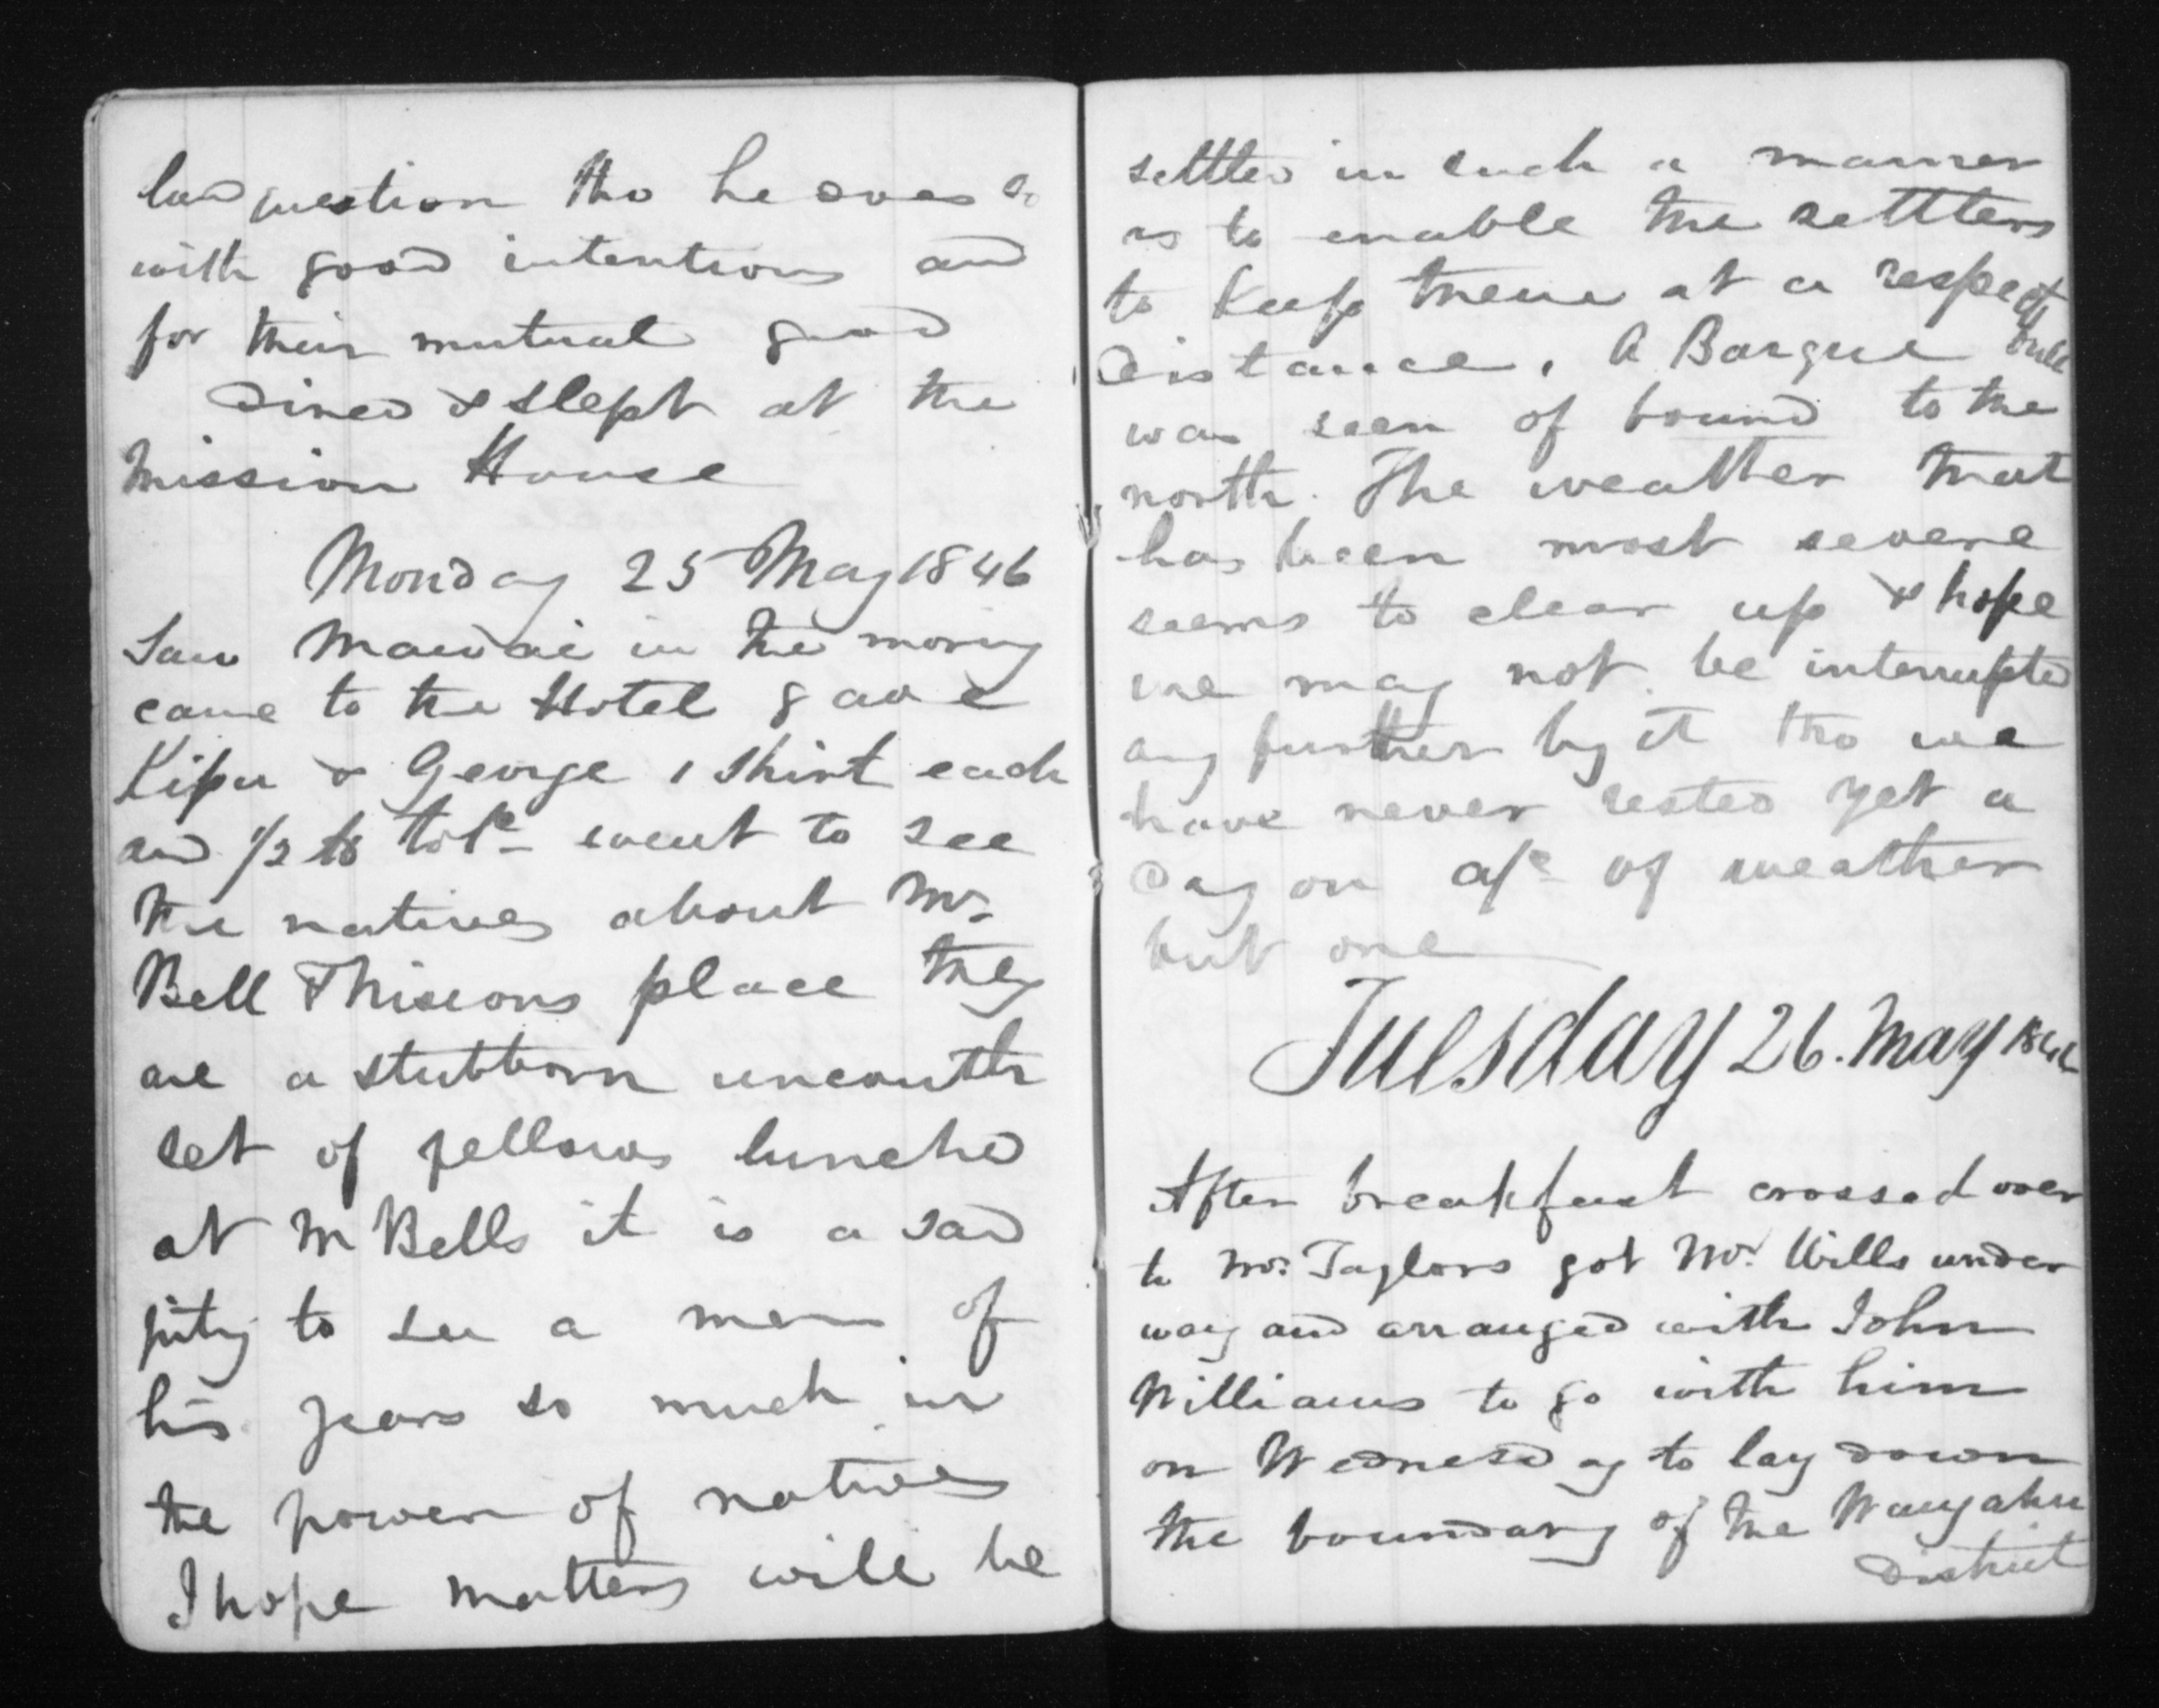 land question tho he does so
with good intentions and
for their mutual good
Dined & slept at the
Mission House
Monday 25 May 1846
Saw Mawai in the morng
came to the Hotel gave
Kipa & George 1 Shirt each
and 1/2 lb tobº went to see
the natives about Mr.
Bell & place they
are a stubborn uncouth
set of fellows lunched
at Mr Bells it is a sad
pity to see a man of
his years so much in
the power of natives
I hope matters will be
settled in such a manner
as to enable the settlers
to keep them at a respectful
distance. A Barque
was seen of bound to the
north. The weather that
has been most severe
seems to clear up & hope
we may not be interrupted
any further by it tho we
have never rested yet a
day on a/c of weather
but one
Tuesday 26. May 1846
After breakfast crossed over
to Mr. Taylors got Mr. Wills under
way and arranged with John
Williams to go with him
on Wednesday to lay down
the boundary of the
District